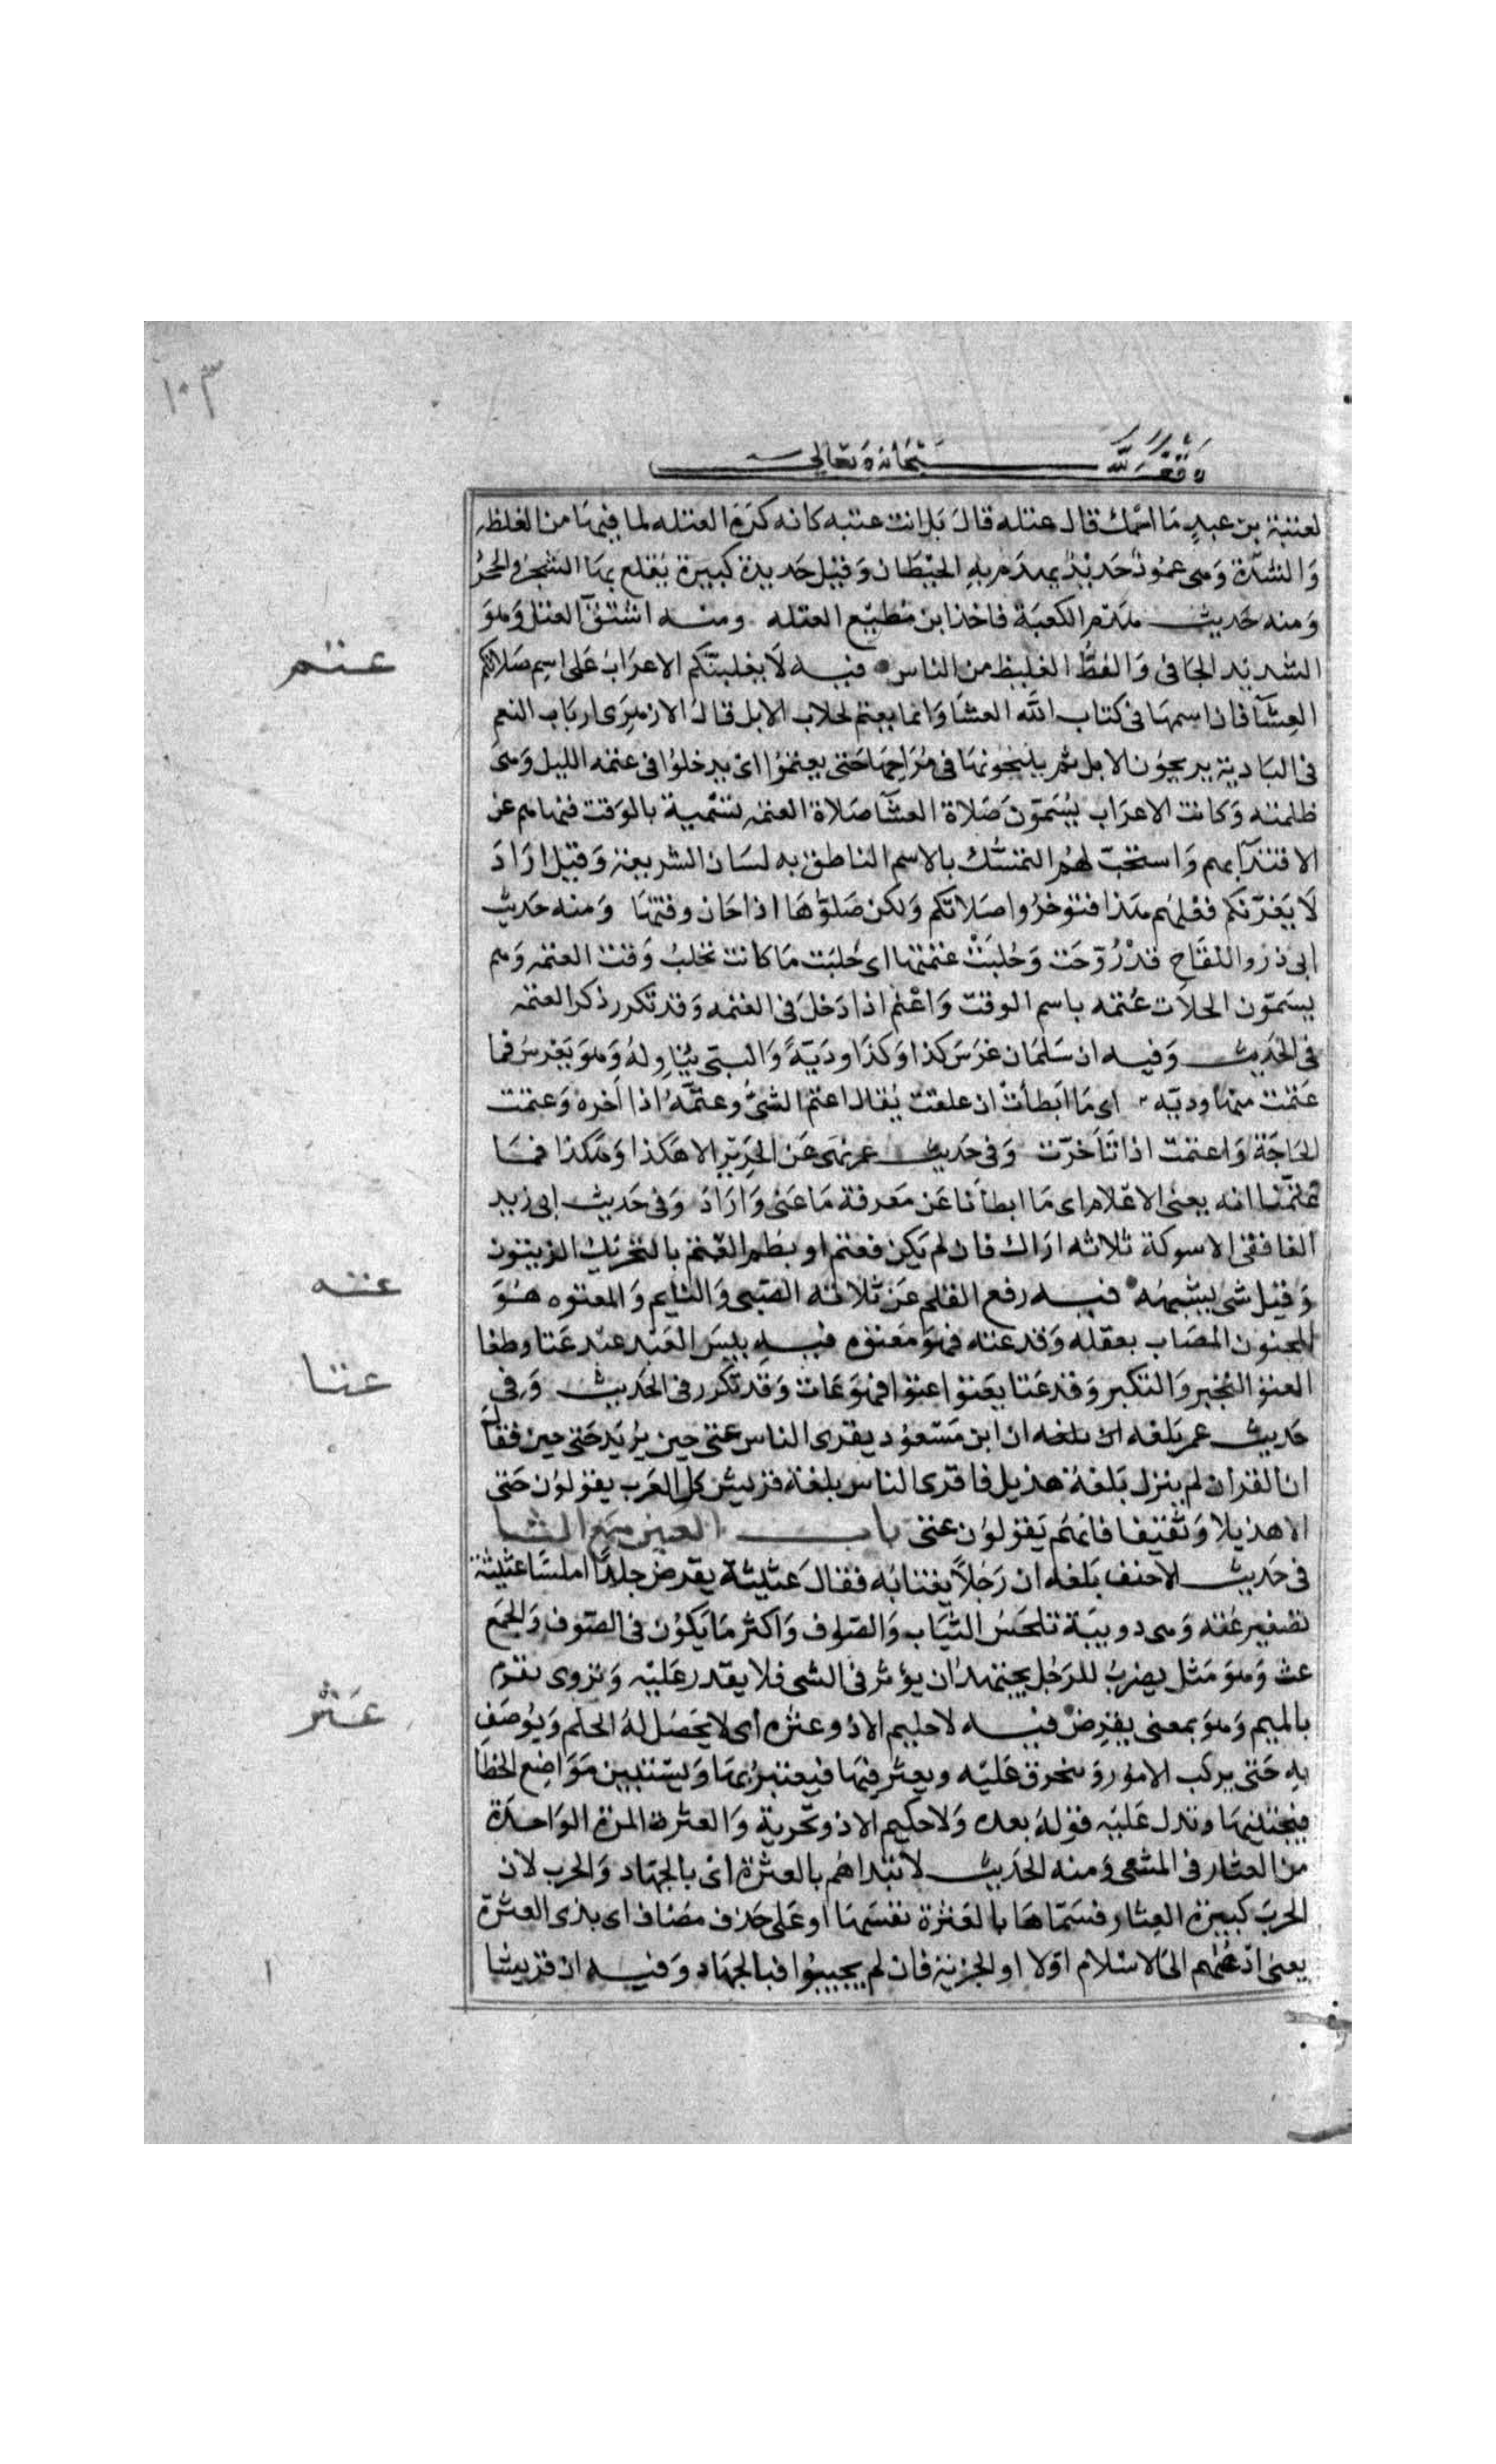 ١٠٣
وقف لله سبحانه وتعالى
لعتبة بن عبد ما اسمك قال عتله قال بل انت عتبه كانه كره العتله لما فيها من الغلظه
والشدة وهي عمود حديد يهدم به الحيطان وقيل حديدة كبيرة يقلع بها الشجر والحجر
ومنه حديث هدم الكعبة فاخذ ابن مطيع العتله ومنه اشتق العتل وهو
الشديد الجافي والفظ الغليظ من الناس فيه لا يغلبنكم الاعراب على اسم صلاتكم
عتم
العشآ فان اسمها في كتاب الله العشا وانما يعتم بحلاب الابل قال الازهري ارباب النعم
في البادية يريحون الابل ثم ينيخونها في مراحها حتى يعتموا اي يدخلوا في عتمه الليل وهي
ظلمته وكانت الاعراب يسمون صلاة العشآ صلاة العتمه تسمية بالوقت فنهاهم عن
الاقتدآ بهم واستحب لهم التمسك بالاسم الناطق به لسان الشريعة وقيل اراد
لا يغرنكم فعلهم هذا فتوخروا صلاتكم ولكن صلوها اذا حان وقتها ومنه حديث
ابي ذر واللقاح قد روحت وحلبت عتمتها اي حلبت ما كانت تحلب وقت العتمه وهم
يسمون الحلاب عتمه باسم الوقت واعتم اذا دخل في العتمه وقد تكرر ذكر العتمه
في الحديث وفيه ان سلمان غرس كذا وكذا ودية والنبي يناوله وهو يغرس فما
عتمت منها وديه اي ما ابطأت ان علقت يقال اعتم الشئ وعتمه اذا اخره وعتمت
الحاجة واعتمت اذا تأخرت وفي حديث عمر نهى عن الحرير الا هكذا وهكذا فما
عتمنا انه يعني الاعلام اي ما ابطأنا عن معرفة ما عنى واراد وفي حديث ابي زيد
الغافقي الاسوكة ثلاثه اراك فان لم يكن فعتم او بطم العتم بالتحريك الزيتون
وقيل شي يشبهه فيه رفع القلم عن ثلاثه الصبي والنايم والمعتوه هو
عته
المجنون المصاب بعقله وقد عته فهو معتوه فيه بيس العبد عبد عتا وطغا
عتا
العتو التجبر والتكبر وقد عتا يعتوا عتوا فهو عات وقد تكرر في الحديث وفي
حديث عمر بلغه ان ابن مسعود يقرى الناس عتى حين يريد حتى حين فقال
ان القران لم ينزل بلغة هذيل فاقرى الناس بلغة قريش كل العرب يقولون حتى
الا هذيلا وثقيفا فانهم يقولون عتى باب العين مع الثا
في حديث الاحنف بلغه ان رجلا يغتابه فقال عثيثة يقرض جلدا املسا عثيثة
تصغير عثه وهي دويبة تلحس الثياب والصوف واكثر ما يكون في الصوف والجمع
عث وهو مثل يضرب للرجل يجتهد ان يؤثر في الشي فلا يقدر عليه وتروى تقرم
بالميم وهو بمعنى يقرض فيه لا حليم الا ذو عثره اي لا يحصل له الحلم ويوصف
عثر
به حتى يركب الامور وتنخرق عليه ويعثر فيها فيعتبر بها ويستبين مواضع الخطا
فيجتنبها وتدل عليه قوله بعده ولا حكيم الا ذو تجربة والعثرة المرة الواحدة
من العثار في المشي ومنه الحديث لا تبداهم بالعثرة اي بالجهاد والحرب لان
الحرب كبيرة العثار فسماها بالعثرة نفسها او على حذف مضاف اي بذي العثرة
يعني ادعهم الى الاسلام اولا او الجزية فان لم يجيبوا فبالجهاد وفيه ان قريشا